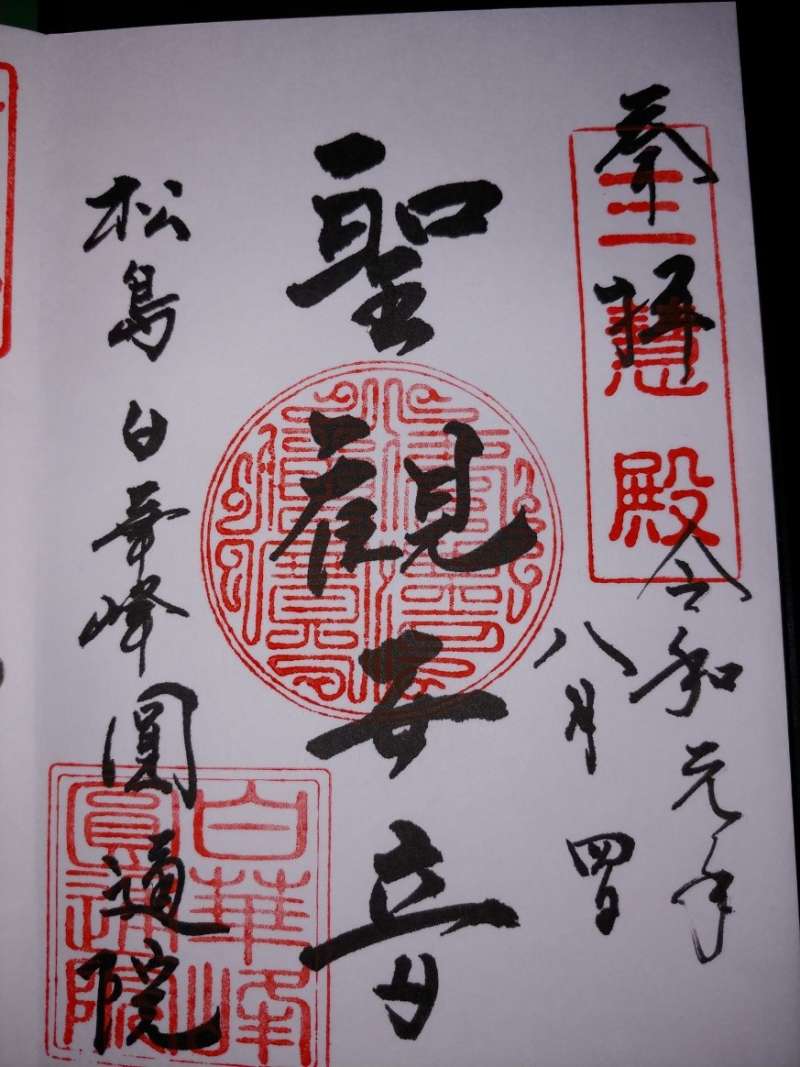 奉拝
三慧殿
令和元年
八月四日
聖観世音
松島白華峰圓通院
白華峰
圓通院